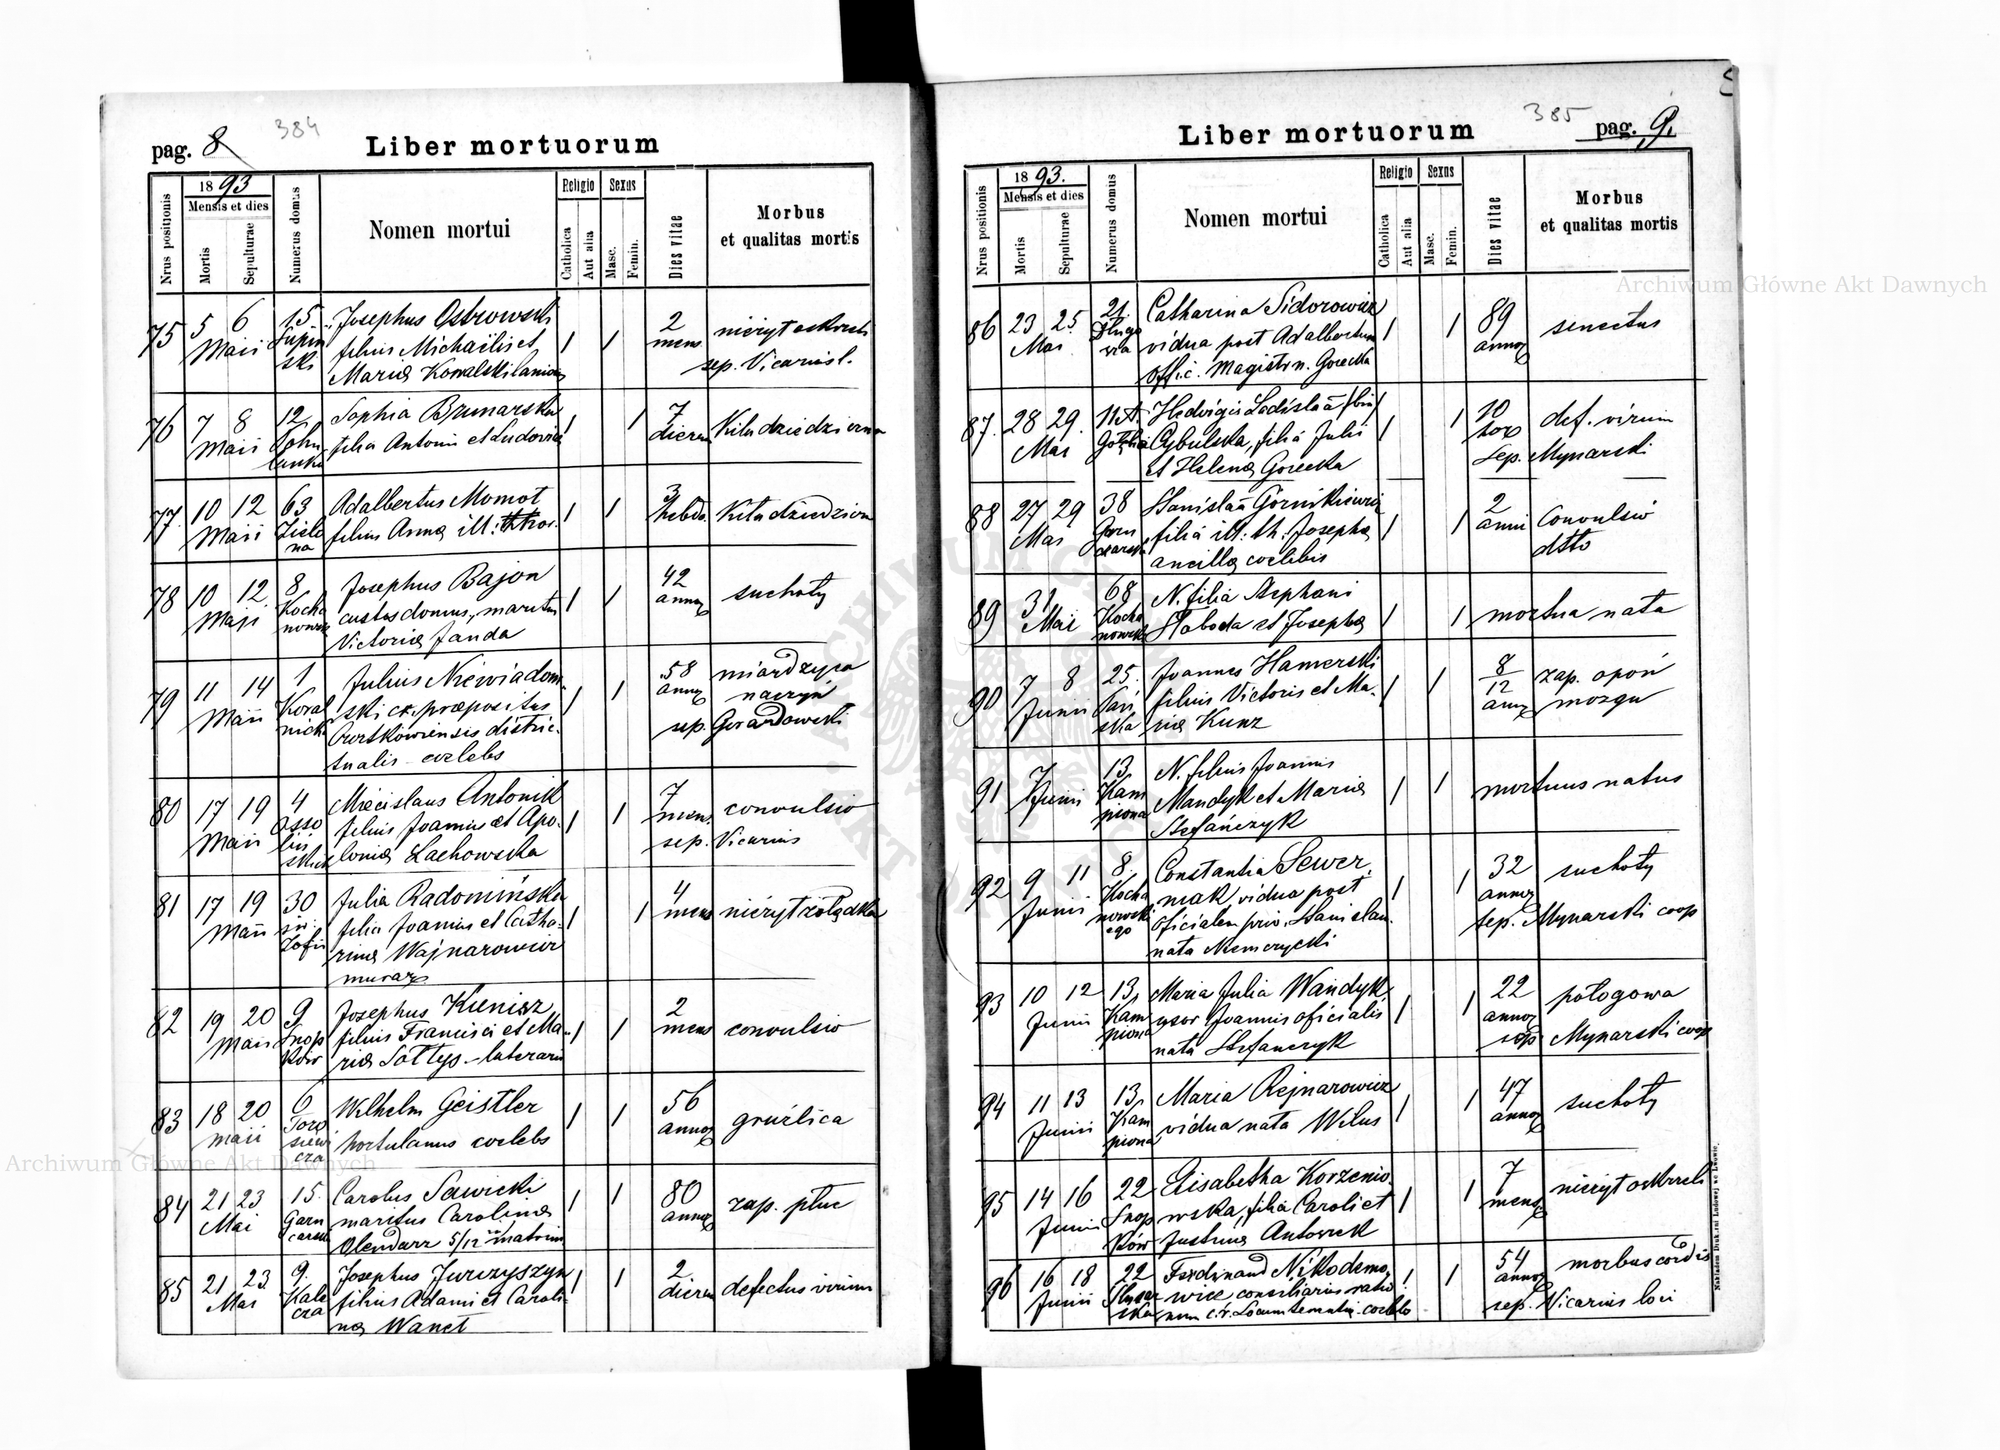 384
pag. 8
Liber mortuorum
Nrus positionis
1893
Mensis et dies
Mortis
Sepulturae
Numerus domus
Nomen mortui
Religio
Catholica
Aut alia
Sexus
Masc.
Femin.
Dies vitae
Morbus
et qualitas mortis
75 5 6 Maii 15 Josephus Ostrowski
filius Michaëlis et
Mariæ Kowalski 1 1 2 mens
sep. Vicarius l.
76 7 8 Maii 12 Sophia Brunarska
filia Antonii et Ludovicæ 1 1 7 dierum
77 10 12 Maii 63 Zielona Adalbertus Momot
filius Annæ ill: 1 1 3 hebdo.
78 10 12 Maji 8 Kochanowsk Josephus Bajon
custos domus, maritus
Victoriæ Janda 1 1 42 annor suchoty
79 11 14 Maii 1 Koralnicka Julius Niewiadom-
ski c.k. præpositus
districtualis - cœlebs 1 1 58 annor miardzyca
naczyń
sep. Gorardowski
80 17 19 Maii 4 Ossolińskich Miecislaus Antonik
filius Joannis et Apo-
loniæ Lachowska 1 1 7 mens. convulsio
sep. Vicarius
81 17 19 Maii 30 św Zofii Julia Radomińska
filia Joannis et Catha-
rinæ Wajnarowicz
murarz 1 1 4 mens nieżyt żołądka
82 19 20 Maii 9 Snopków Josephus Kunisz
filius Francisci et Ma-
riæ Sołtys - laterarii 1 1 2 mens convulsio
83 18 20 maii 6 Torosiewicza Wilhelm Geistler
hortulanus cœlebs 1 1 56 annor gruźlica
84 21 23 Mai 15 Garncarska Carolus Sawicki
maritus Carolinæ
Olendarz 5/12 matrim 1 1 80 annor zap. płuc
85 21 23 Mai 9. Kalecza Josephus Jurczyszyn
filius Adami et Caroli-
næ Wanet 1 1 2 dierum defectus virium
385
Liber mortuorum
pag. 9.
Nrus positionis
1893.
Mensis et dies
Mortis
Sepulturae
Numerus domus
Nomen mortui
Religio
Catholica
Aut alia
Sexus
Masc.
Femin.
Dies vitae
Morbus
et qualitas mortis
86 23 25 Mai 21. Długosza Catharina Sidorowicz
vidua post Adalbertum
offic. Magistr n. Gorecka 1 1 89 annor senectus
87. 28 29. Mai 11A Hedvigis Ladislaa
Cybulska, filia Julii
et Helenæ Gorecka 1 1 10 def. virium
sep. Mynarski
88 27 29 Mai 38 Garncarska Stanislaa Górnikiewicz
filia ill: th: Josephæ
ancillæ cœlebis 1 1 2 anni Convulsio
dtto
89 31 Mai 68 Kochanowsk N. filia Stephani
Słoboda et Josephæ 1 1 mortua nata
90 7 8 Junii 25. Pańska Joannes Hamerski
filius Victoris et Ma-
riæ Kunz 1 1 8/12 anni zap. opon
mozgu
91 7 Junii 13 Kampiana N. filius Joannis
Mandyk et Mariæ
Stefańczyk 1 1 mortuus natus
92 9 11 Junii 8. Kochanowskiego Constantia Sewer-
niak vidua post
oficialem priv. Stanislaum
nata Niemczycki 1 1 32 annor suchoty
sep. Mynarski coop
93 10 12 Junii 13, Kampiana Maria Julia Wandyk
uxor Joannis oficialis
nata Stefanczyk 1 1 22 annor pologowa
sep. Mynarski coop
94 11 13 Junii 13. Kampiana Maria Rejnarowicz
vidua nata Wilus 1 1 47 annor suchoty
95 14 16 Junii 22 Snopków Elisabetha Korzenio-
wska, filia Caroli et
Justinæ Antoszek 1 1 7 mens nieżyt oskrzeli
96 16 18 Junii 22 Ferdinand Nikodemo-
wicz consiliarius ratio
num c.k. Locumtenentiæ cœlebs 1 1 54 annor morbus cordis
sep. Vicarius loci
Nakładem Drukarni Ludowej we Lwowie.
Archiwum Główne Akt Dawnych
Archiwum Główne Akt Dawnych